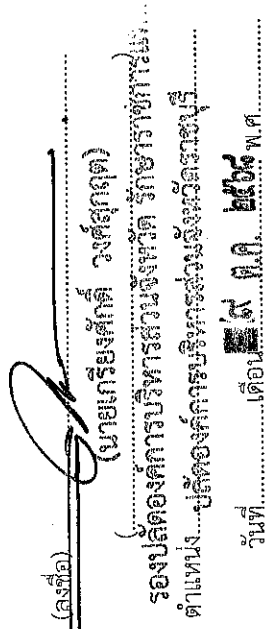 (ลงชื่อ)
(นายเกรียงศักดิ์ วงศ์สุกฤต)
รองปลัดองค์การบริหารส่วนจังหวัด รักษาราชการแทน
ตำแหน่ง ปลัดองค์การบริหารส่วนจังหวัดราชบุรี
วันที่ เดือน ต.ค. ๒๕๖๘ พ.ศ.